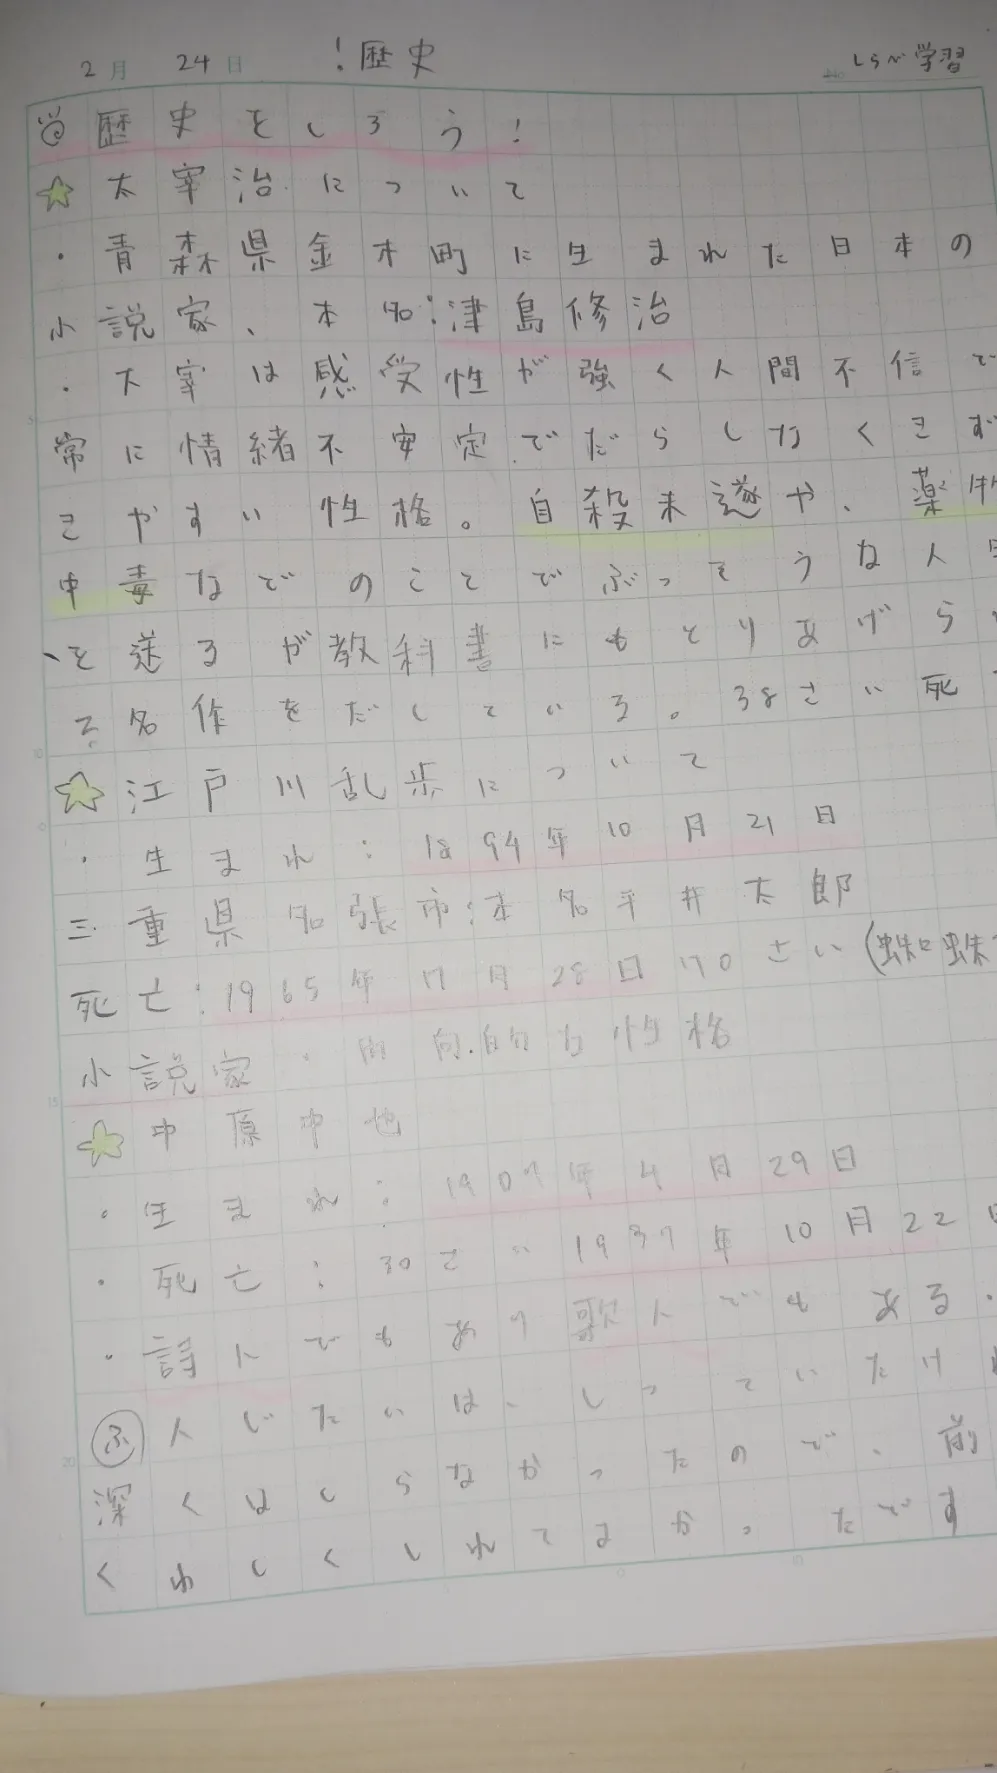 2月 24日 !歴史 しらべ学習
歴史をしろう!
☆太宰治について
・青森県金木町に生まれた日本の
小説家、本名:津島修治
・太宰は感受性が強く人間不信で
常に情緒不安定でだらしなくきず
きやすい性格。自殺未遂や、薬物
中毒などのことでぶっそうな人
を送るが教科書にもとりあげら
る名作をだしている。38さい死
☆江戸川乱歩について
・生まれ:1894年10月21日
三重県名張市:本名平井太郎
死亡:1965年7月28日70さい(蜘蛛
小説家・内向的な性格
☆中原中也
・生まれ:1907年4月29日
・死亡:30さい1937年10月22日
・詩人でもあり歌人でもある.
ふ人じたいは、しっていたけ
深くはしらなかったので、前
くわしくしれてよかったです